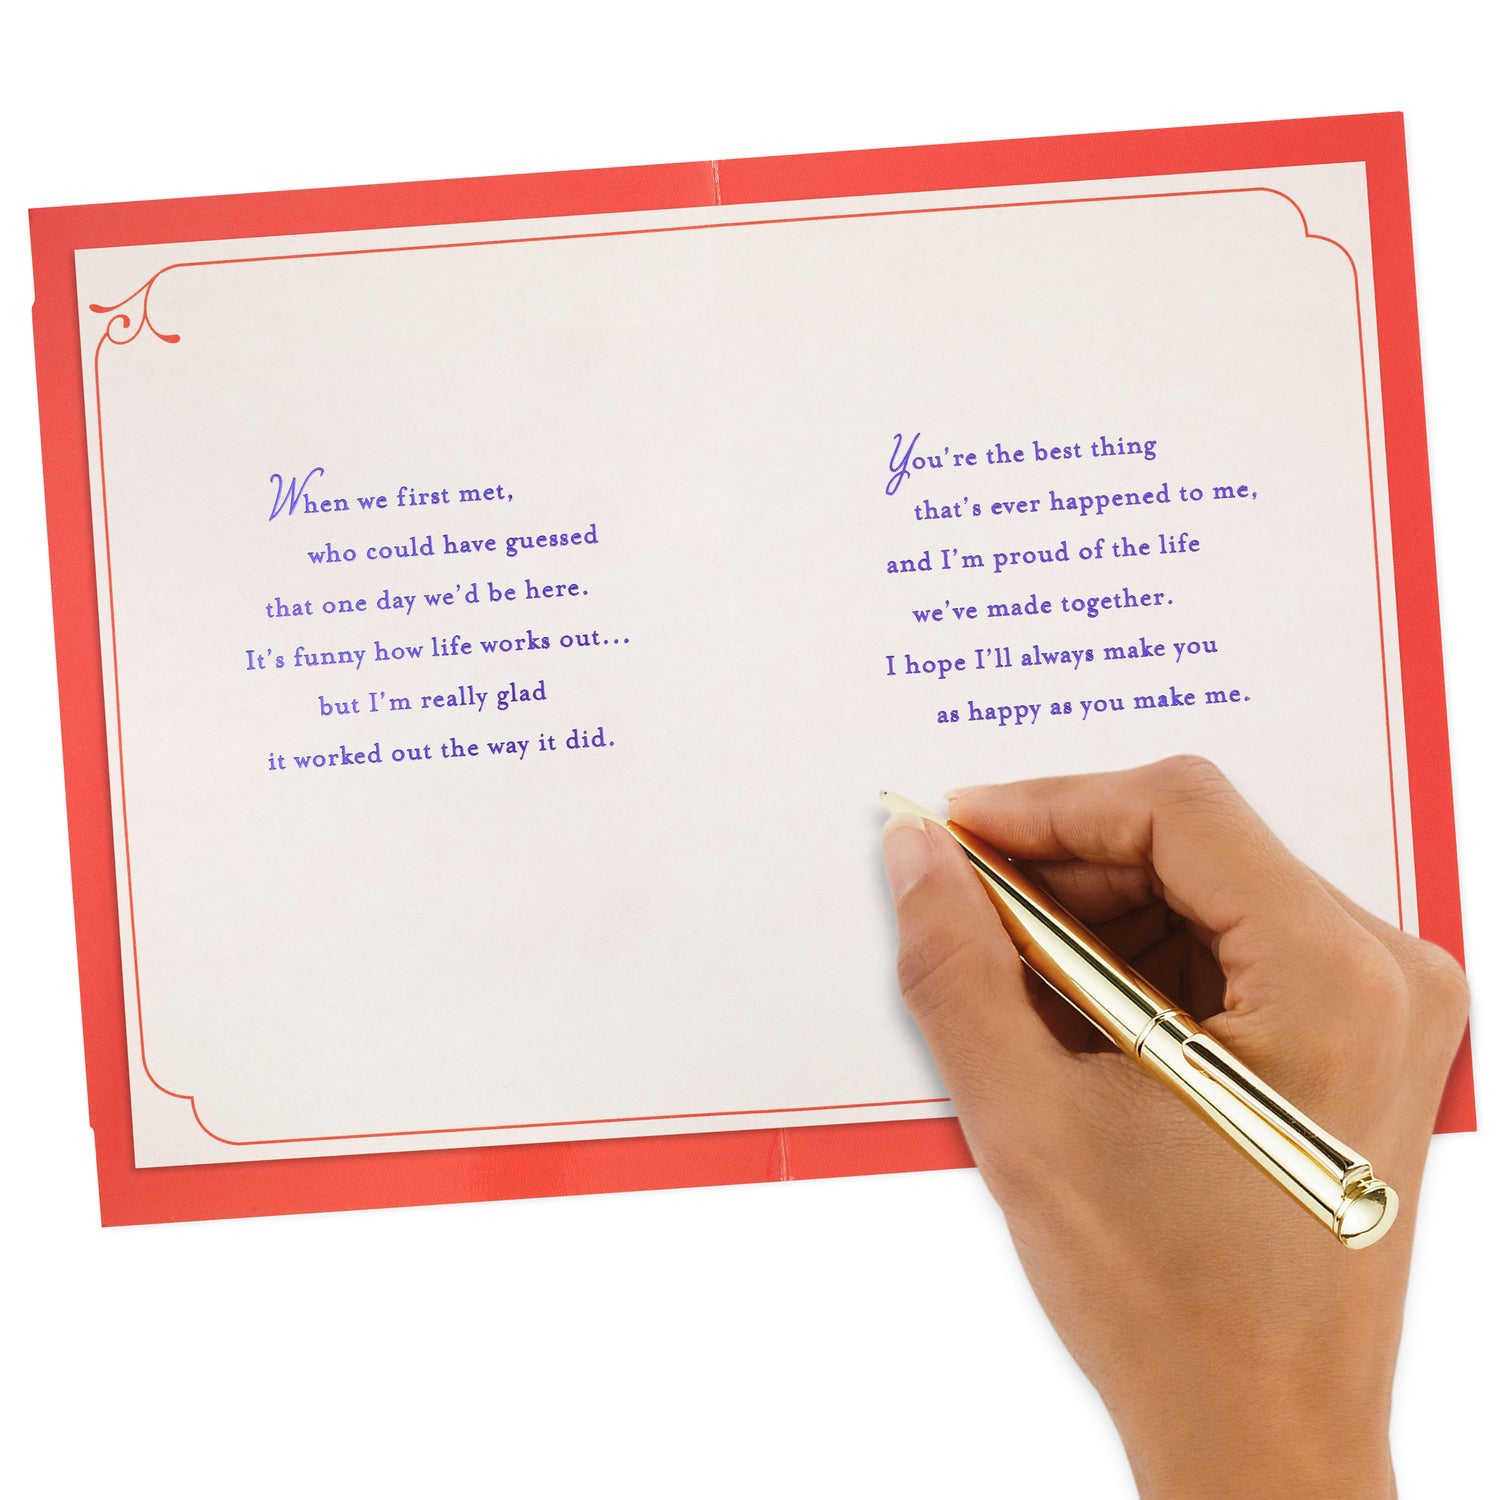 When we first met,
who could have guessed
that one day we'd be here.
It's funny how life works out...
but I'm really glad
it worked out the way it did.
You're the best thing
that's ever happened to me,
and I'm proud of the life
we've made together.
I hope I'll always make you
as happy as you make me.